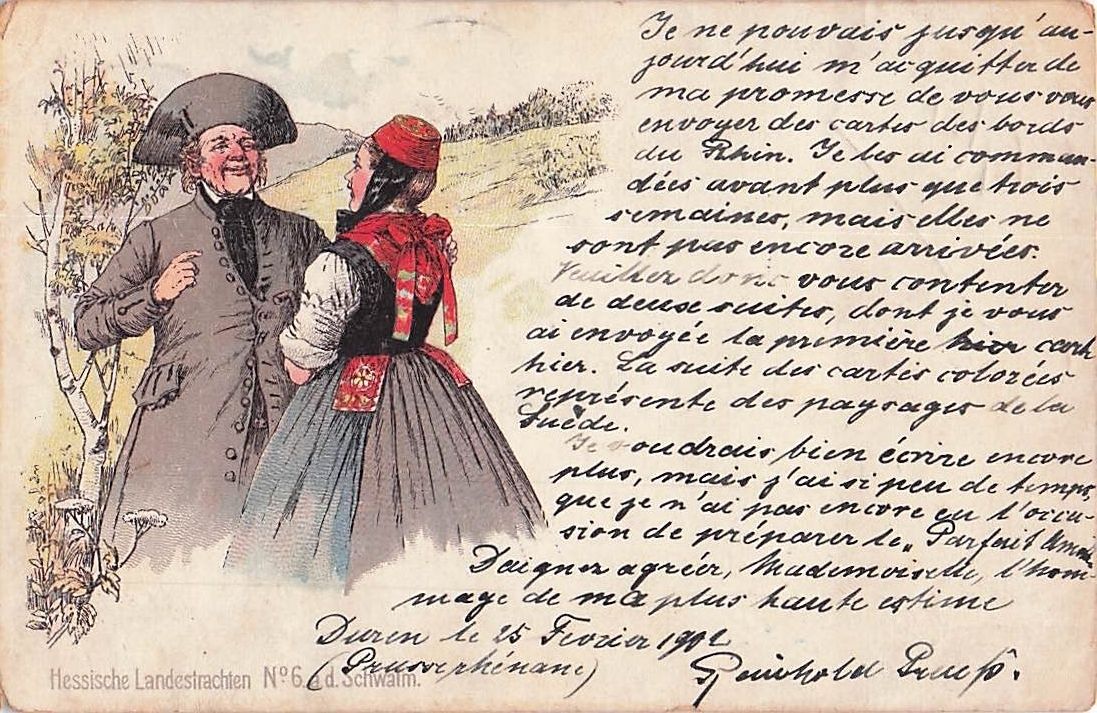 Je ne pouvais jusqu'au-
jourd'hui m'acquitter de
ma promesse de vous vous
envoyer des cartes des bords
du Rhin. Je les ai comman-
dées avant plus que trois
semaines, mais elles ne
sont pas encore arrivées.
Veuillez donc vous contenter
de deux suites, dont je vous
ai envoyée la première hier
hier. La suite des cartes colorées
représente des paysages de la
Suède.
Je voudrais bien écrire encore
plus, mais j'ai si peu de temps,
que je n'ai pas encore eu l'occa-
sion de préparer le „Parfait
Daignez agréer, Mademoiselle, l'hom-
mage de ma plus haute estime
Duren le 25 Fevrier 1902
(Prusse rhénane)
Reinhold Preuß.
Hessische Landestrachten No 6. a d. Schwalm.